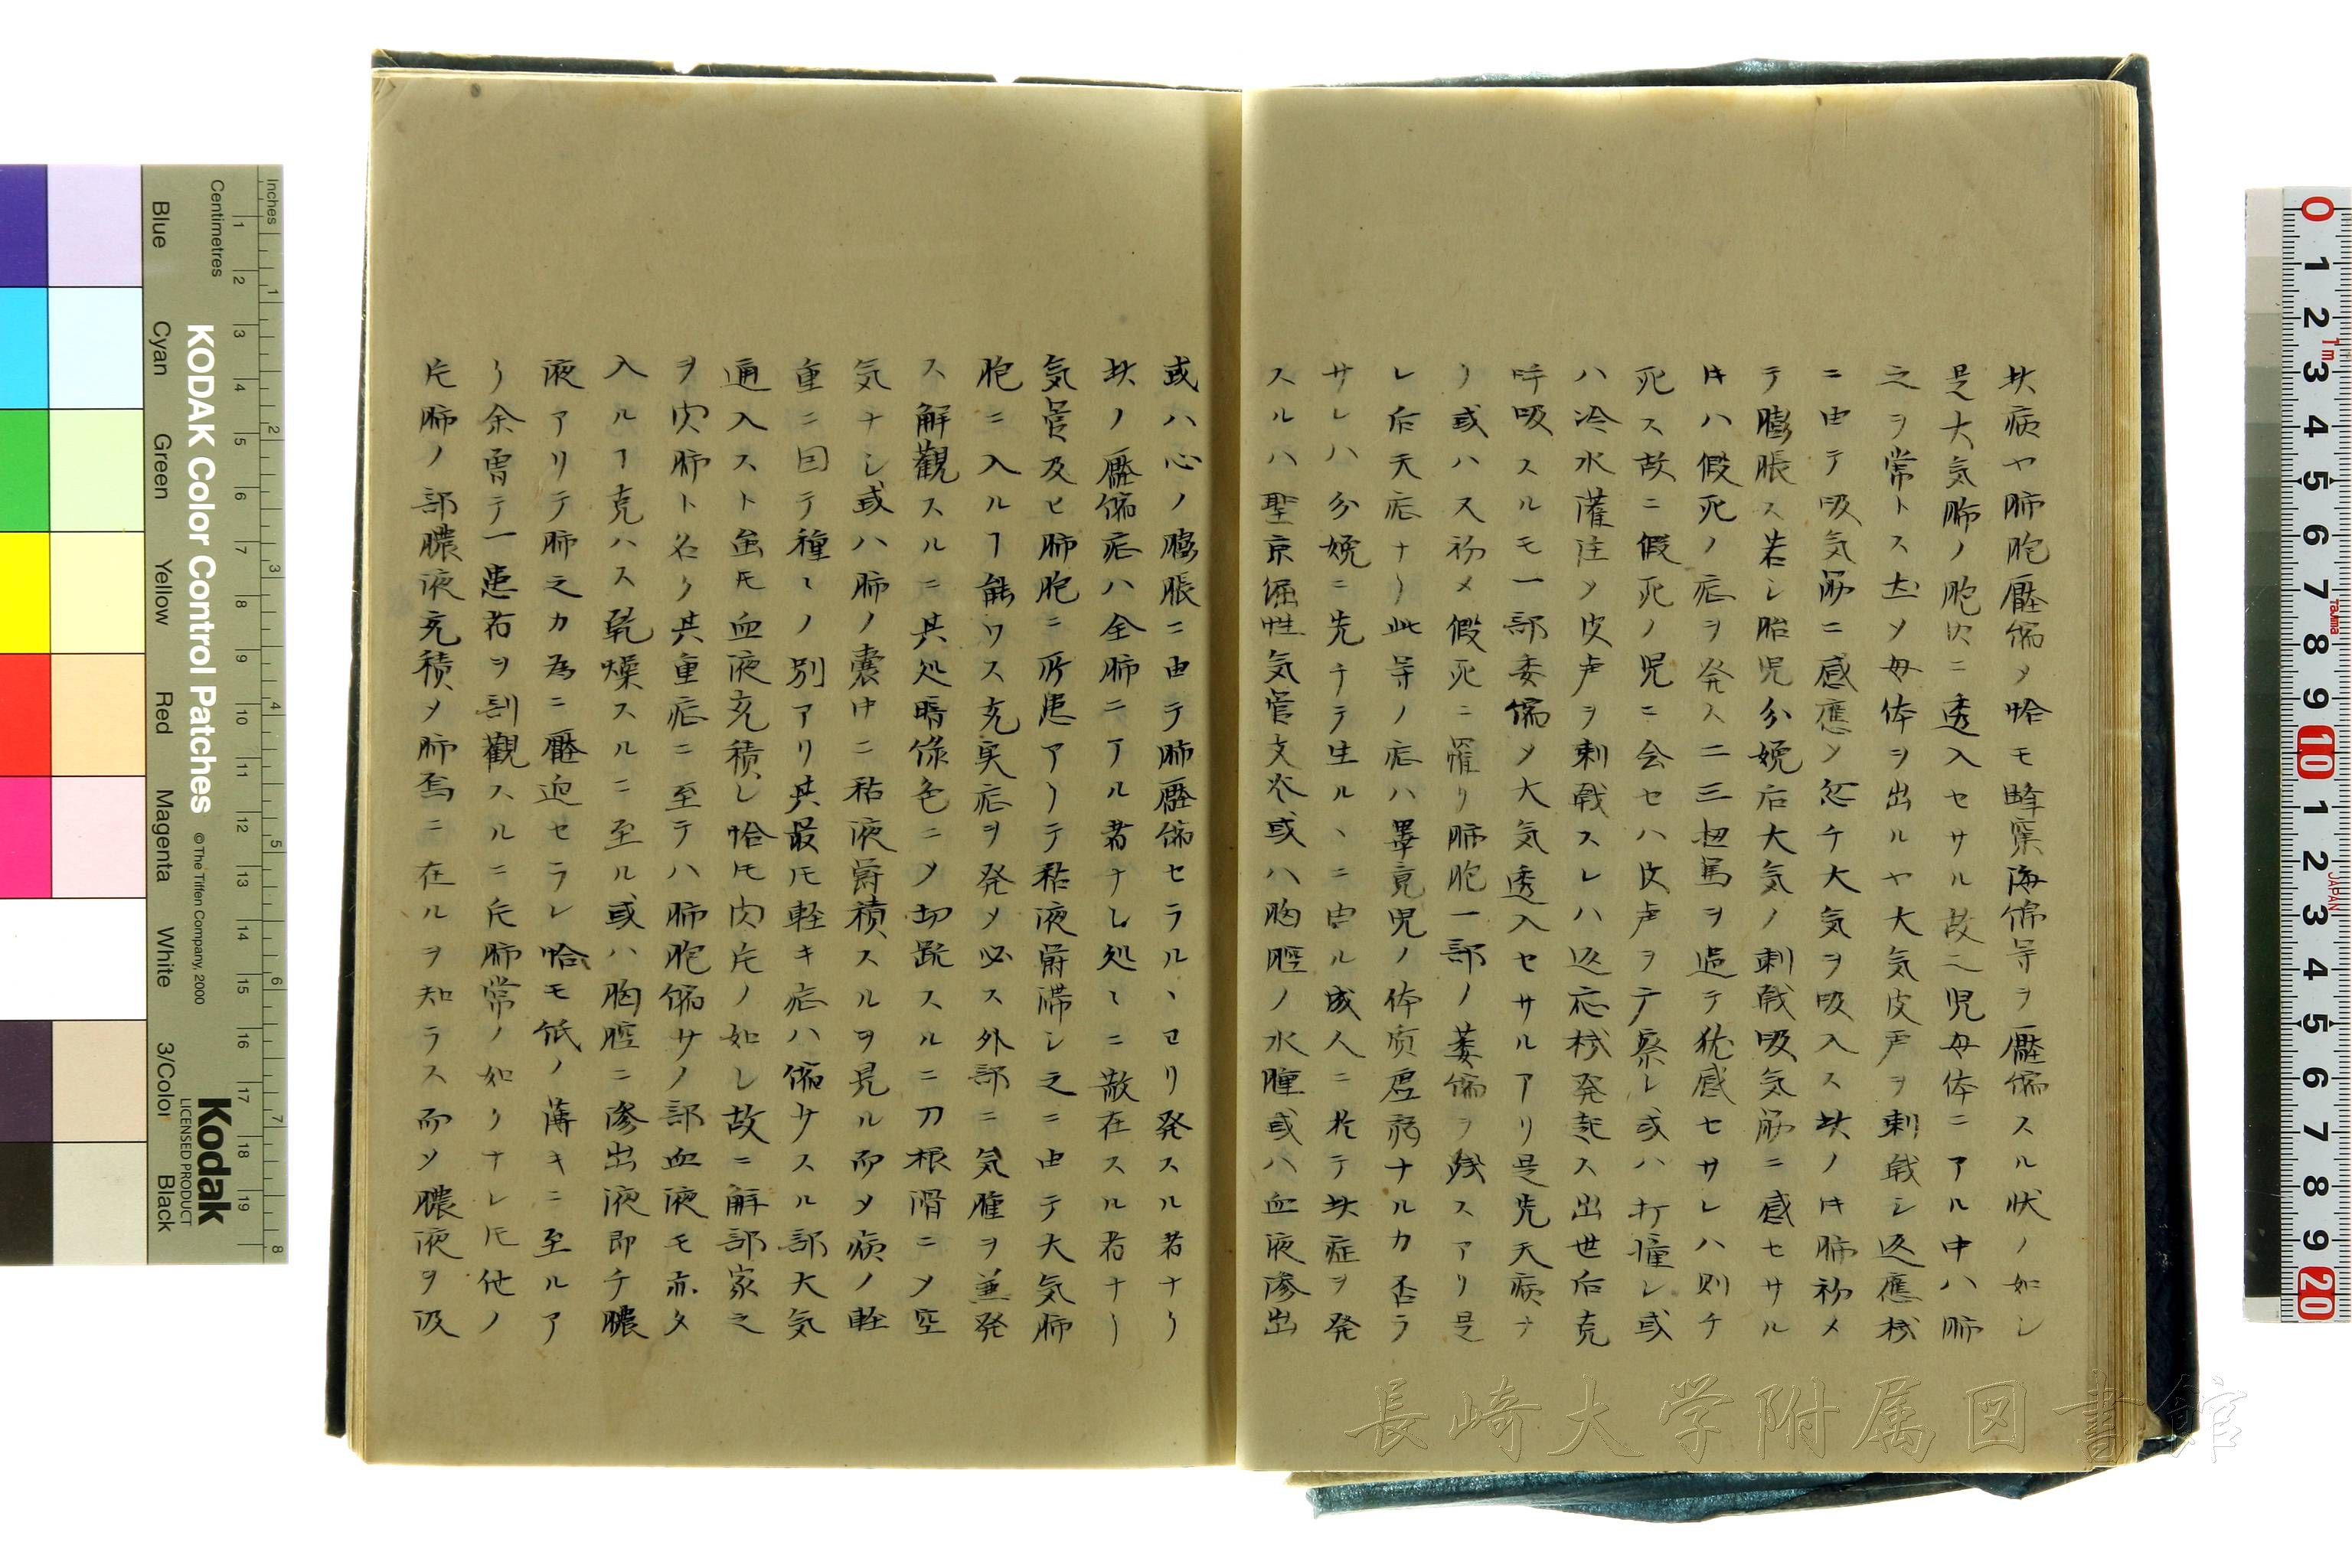 此病ヤ肺胞壓縮〆恰モ蜂窠海綿等ヲ壓縮スル状ノ如シ
是大気肺ノ胞内ニ透入セサル故ニ児母体ニアル中ハ肺
之ヲ常トス尤〆母体ヲ出ルヤ大気皮声ヲ刺戟シ返應機
ニ由テ吸気筋ニ感應〆忽チ大気ヲ吸入ス此ノ時肺初メ
テ膨脹ス若シ胎児分娩后大気ノ刺戟吸気筋ニ感セサル
時ハ假死ノ症ヲ発ス二三扭篤ヲ過テ猶感セサレハ則チ
死ス故ニ假死ノ児ニ会セハ皮声ヲ摩察シ或ハ打撞シ或
ハ冷水灌注〆皮声ヲ刺戟スレハ返応機発起ス出世后克
呼吸スルモ一部委縮〆大気透入セサルアリ是先天病ナ
リ或ハ又初メ假死ニ罹リ肺胞一部ノ萎縮ヲ残スアリ是
レ后天症ナリ此等ノ症ハ畢竟児ノ体质虚弱ナルカ否ラ
サレハ分娩ニ先チテ生ルヽニ由ル成人ニ於テ此症ヲ発
スルハ聖京偏性気管支炎或ハ胸腔ノ水腫或ハ血液滲出
或ハ心ノ膨脹ニ由テ肺壓縮セラルヽヨリ発スル者ナリ
此ノ壓縮症ハ全肺ニアル者ナし処々ニ散在スル者ナリ
気管及ヒ肺胞ニ所患アリテ粘液欝滞シ之ニ由テ大気肺
胞ニ入ルヿ能ワス充実症ヲ発〆必ス外部ニ気腫ヲ兼発
ス解觀スルニ其処暗緑色ニ〆切跣スルニ刀根滑ニ〆空
気ナシ或ハ肺ノ嚢中ニ粘液欝積スルヲ見ル而〆病ノ軽
重ニ因テ種々ノ別アリ其最モ軽キ症ハ縮サスル部大気
通入スト虽𪜈血液充積シ恰モ肉片ノ如シ故ニ解部家之
ヲ肉肺ト名ク其重症ニ至テハ肺胞縮サノ部血液モ亦タ
入ルヿ克ハス乾燥スルニ至ル或ハ胸腔ニ滲出液即チ膿
液アリテ肺之カ為ニ壓迫セラレ恰モ低ノ薄キニ至ルア
リ余曽テ一患者ヲ剖觀スルニ片肺常ノ如クナレ𪜈他ノ
片肺ノ部膿液充積〆肺焉ニ在ルヲ知ラス而〆膿液ヲ汲
長崎大学附属図書館
KODAK Color Control Patches
© The Tiffen Company, 2000
Kodak
LICENSED PRODUCT
Inches
Centimetres
Blue Cyan Green Yellow Red Magenta White 3/Color Black
JAPAN